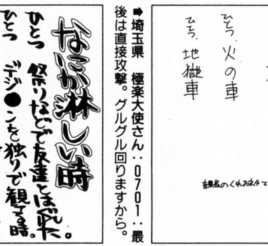 ひとつ、火の車
ひとつ、地獄車
➡埼玉県 極楽大使さん‥0701‥最
後は直接攻撃。グルグル回りますから。
なにか淋しい時
ひとつ 祭りなどで友達とはぐれた。
ひとつ デジ●ンを独りで観てる時。